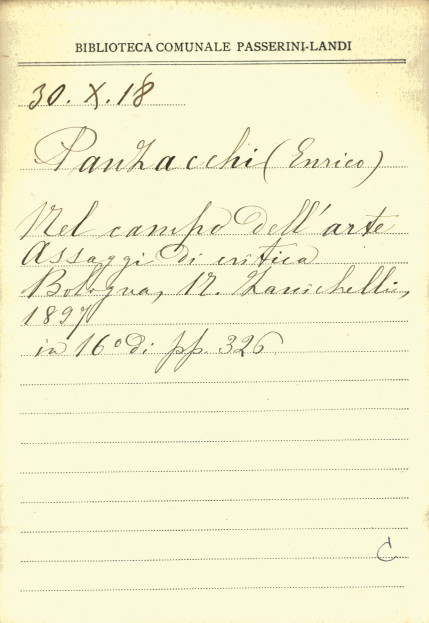 BIBLIOTECA COMUNALE PASSERINI-LANDI
30. X. 18
Panzacchi (Enrico)
Nel campo dell'arte
Assaggi di critica
Bologna, N. Zanichelli,
1897
in 16° di pp. 326
C